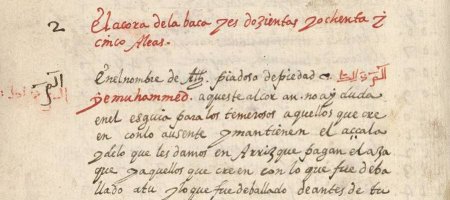 2
El açora dela baca yes dozientas yochenta y
cinco Aleas.
Enelnombre de Allh. piadoso de piedad
yemuhammed. aqueste alcoran. no ay duda
enel esguia para los temerosos aquellos que cre
en conlo ausente ymantienen el accala
ydelo que les damos en Arrizque pagan el aza
que yaquellos que creen con lo que fue deba
llado atu ylo que fue deballado deantes de tu